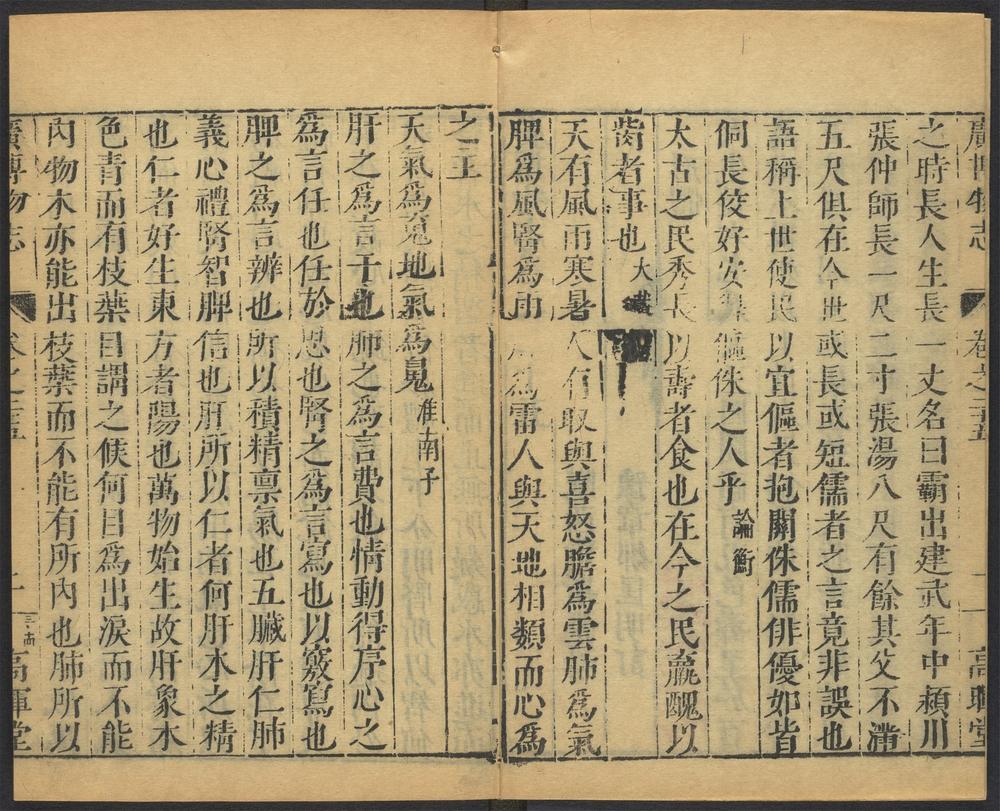 廣博物志 卷之二十五 高暉堂
之時長人生長一丈名曰霸出建武年中潁川
張仲師長一尺二寸張湯八尺有餘其父不滿
五尺俱在今世或長或短儒者之言竟非誤也
語稱上世使民以宜傴者抱關侏儒俳優如皆
侗長佼好安得傴侏之人乎 論衡
太古之民秀長以壽者食也在今之民羸醜以
者事也 大戴
天有風雨寒暑人有取與喜怒膽爲雲肺爲氣
脾爲風腎爲雨 爲雷人與天地相類而心爲
之主
天氣爲魂地氣爲鬼 淮南子
肝之爲言干也肺之爲言費也情動得序心之
爲言任也任於思也腎之爲言寫也以竅寫也
脾之爲言辨也所以積精禀氣也五臟肝仁肺
義心禮腎智脾信也肝所以仁者何肝木之精
也仁者好生東方者陽也萬物始生故肝象木
色青而有枝葉目謂之候何目爲出淚而不能
內物木亦能出枝葉而不能有所內也肺所以
廣博物志 卷之二十五 高暉堂